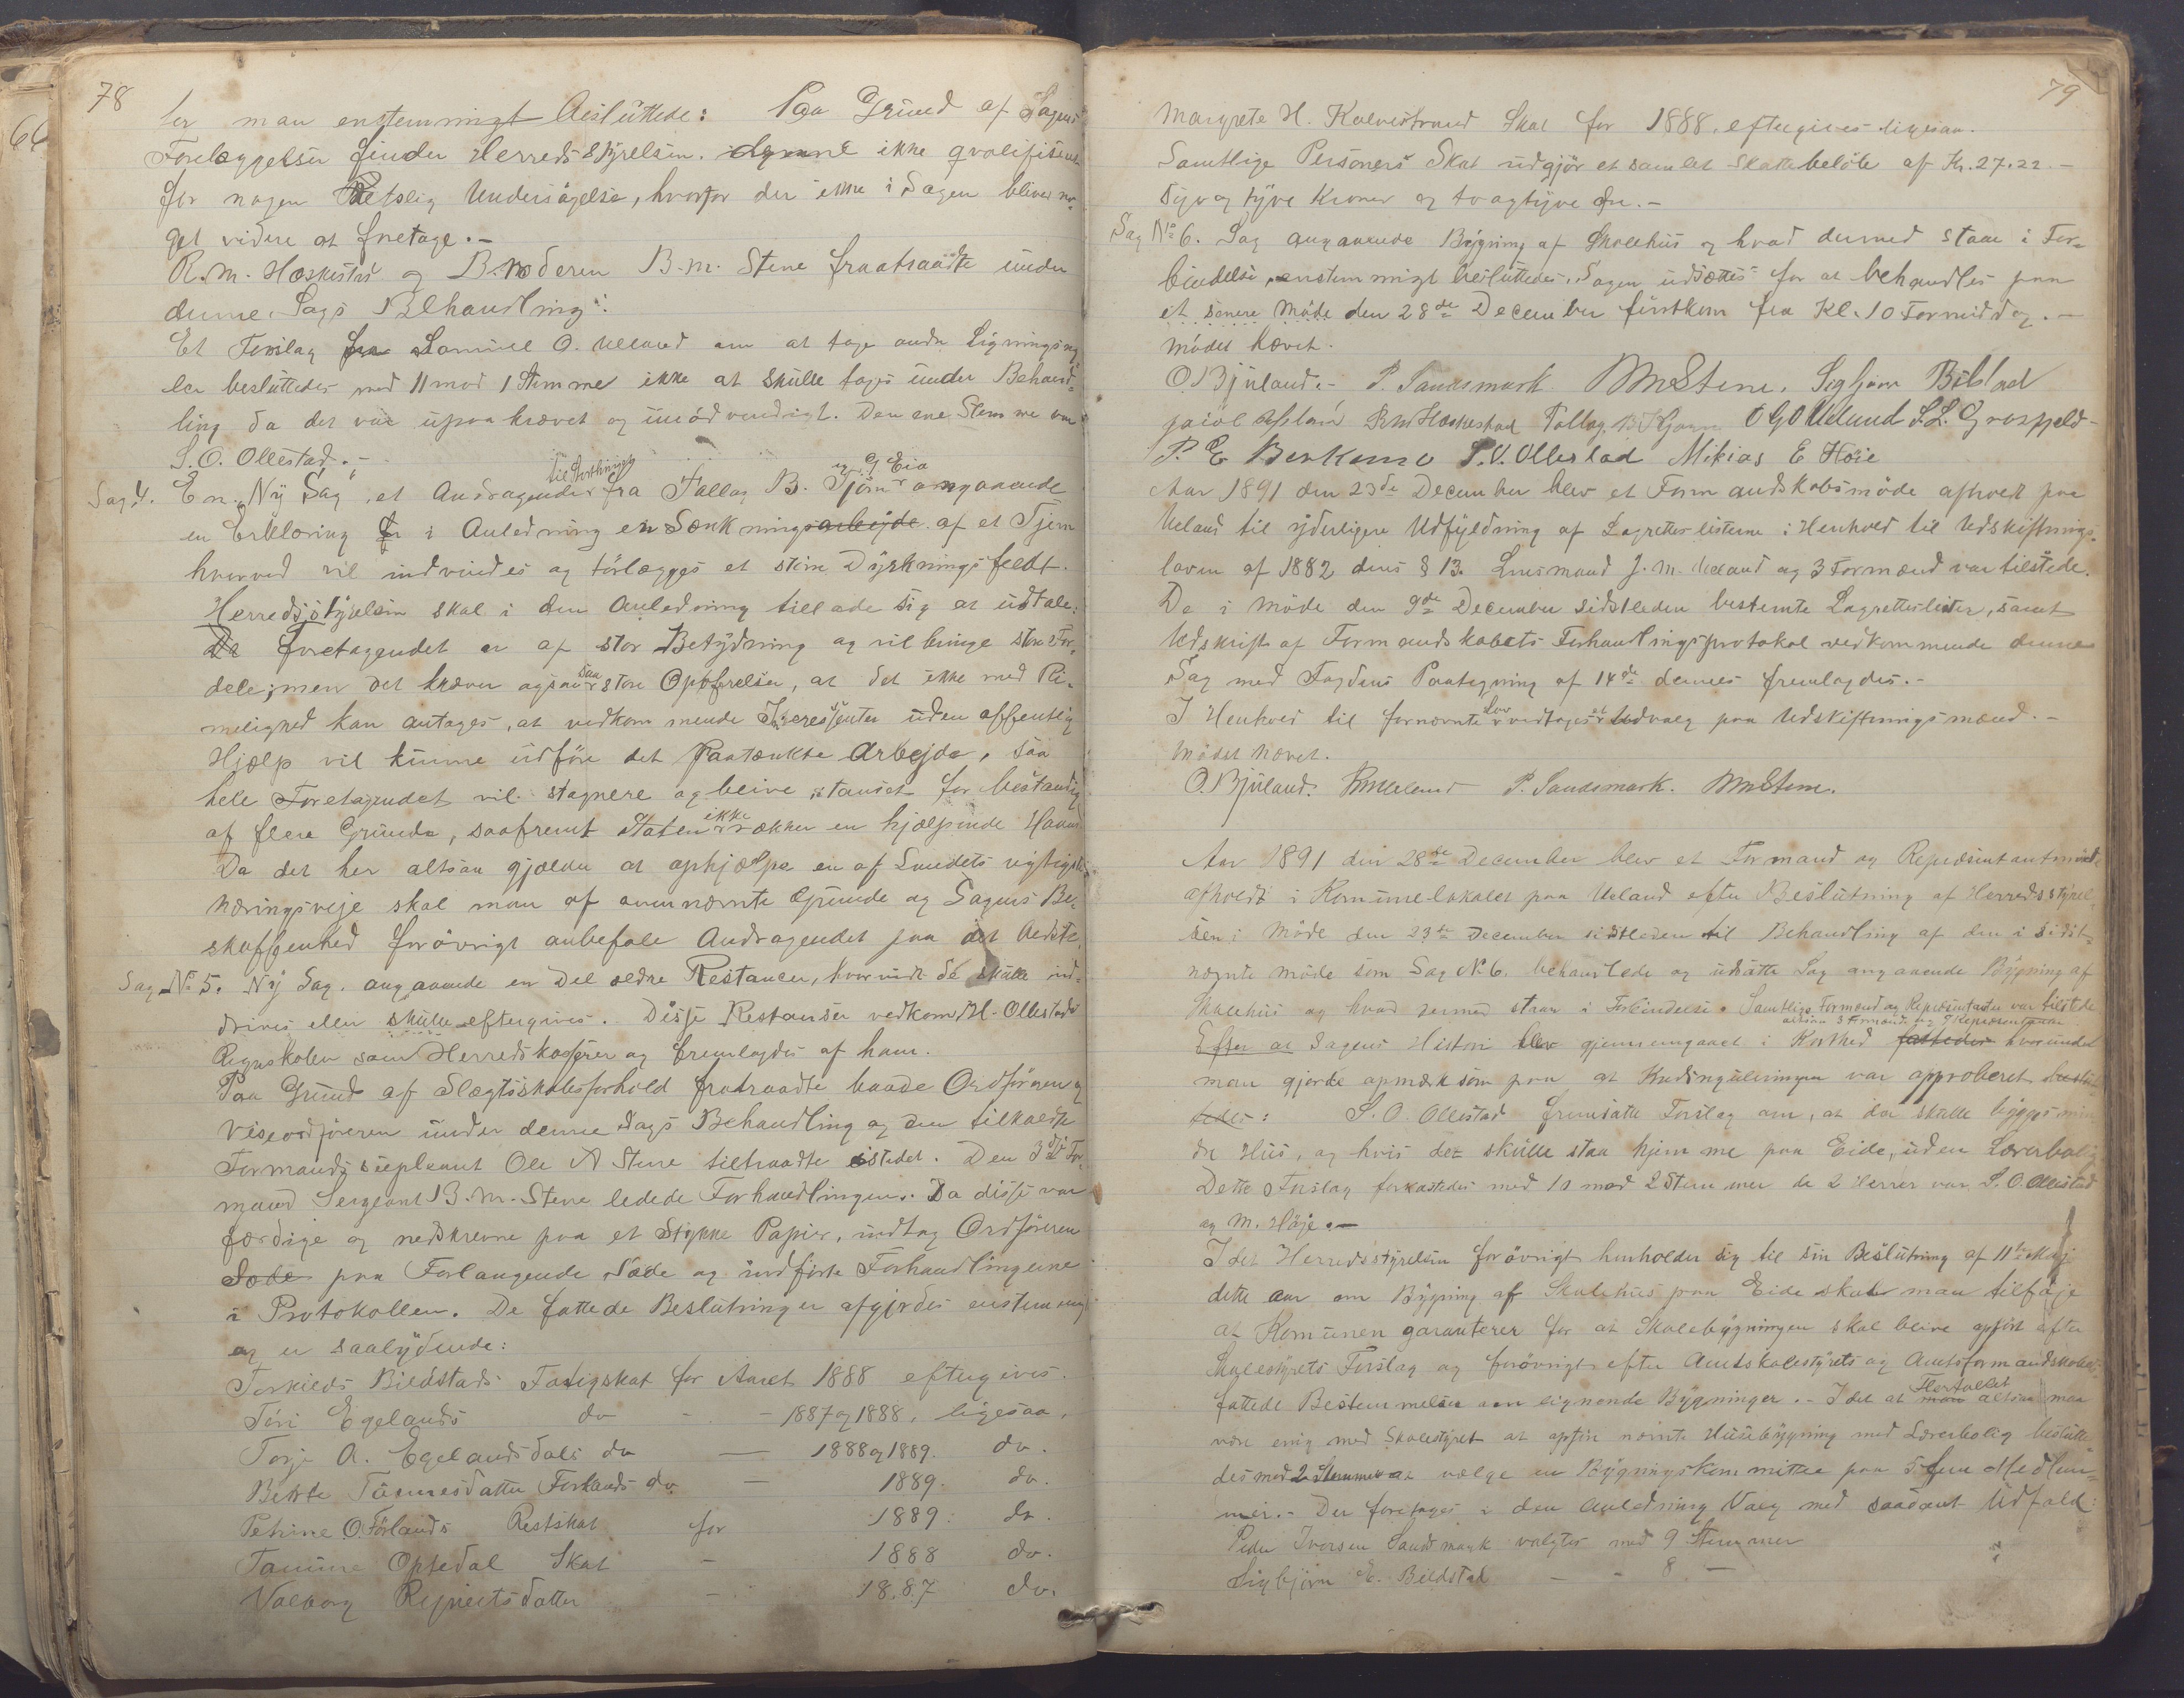 78
ler man enstemmigt besluttede: Paa Grund af Sagens
Forelæggelser finder Herreds Styrelsen ikke qvalifiseret
for nogen Retslig Undersøgelse, hvorfor der ikke i Sagen bliver no-
get videre at foretage.-
R. M. Hæskestad og Broderen B. M. Stene fratraadte under
denne Sags Behandling.
Et Forslag fra Samuel O. Ueland om at tage andre Ligningsreg
ler besluttedes med 11 mod 1 Stemme ikke at skulle tages under Behand-
ling da det var upaakrævet og unødvendigt. Den ene Stemme var
S. O. Ollestad.-
til Storthinget og G Eia
Sag 4. En "Ny Sag", et Andragende fra Tallag B. Tjørn angaaende
en Erklæring i Anledning en Sænkningsarbejde af et Tjern
hvorved vil indvindes og tørlægges et større Dyrkningsfeldt.
Herredsstyrelsen skal i den Anledning tillade sig at udtale:
De foretagendet er af stor Betydning og vil bringe store For-
dele; men det kræver ogsaa saa store Opofrelser, at det ikke med Ri-
melighed kan antages, at vedkommende Interessenter uden offentlig
Hjælp vil kunne udføre det paatænkte Arbejde, saa
hele Foretagendet vil stagnere og blive standset for bestandig
af flere Grunde, saafremt Staten ikke rækker en hjælpende Haand
Da det her altsaa gjælder at ophjælpe en af Landets vigtigste
Næringsveje skal man af ovennævnte Grunde og Sagens Be-
skaffenhed forøvrigt anbefale Andragendet paa det bedste.
Sag No 5. Ny Sag. angaaende en Del ældre Restancer, hvorvidt de skulle ind-
drives eller skulle eftergives. Disse Restanser vedkom H. Ollestads
Regnskaber som Herredskasserer og fremlagdes af ham.
Paa Grund af Slægtskabsforhold fratraadte baade Ordføreren og
Viseordføreren under denne Sags Behandling og den tilkaldte
Formandssupleant Ole A Stene tiltraadte istedet. Den 3die For-
mand Sergeant B. M. Stene ledede Forhandlingen. Da disse var
færdige og nedskrevne paa et Stykke Papir, indtog Ordføreren
Sæde paa Forlangende Sæde og indførte Forhandlingerne
i Protokollen. De fattede Beslutninger afgjordes enstemmigt
og er saalydende:
Torkilds Bildstads Fattigskat for Aaret 1888 eftergives.
Tøri Egelands do - - 1887 og 1888, ligesaa.
Torje A. Egelandsdals do — 1888 og 1889. do.
Berte Tønnesdatter Førlands do — 1889. do.
Petrine O. Førlands Restskat for 1889. do.
Tønnine Opsedal Skat - 1888 do.
Valborg Rejnertsdatter - 1887 do.
79
Margrete H. Kalvestrand Skat for 1888, eftergives ligesaa.
Samtlige Personers Skat udgjør et samlet Skattebeløb af Kr. 27.22.-
Syv og tyve Kroner og to og tyve Øre.-
Sag No 6. Sag angaaende Bygning af Skolehus og hvad dermed staar i For-
bindelse, enstemmigt besluttedes, Sagen udsættes for at behandles paa
et senere Møde den 28de December førstkom fra Kl. 10 Formiddag.-
Mødet hævet.
O. Bjuland.- P. Sandsmark BM Stene. Sigbjørn Bilstad
R M Hæskestad Tallag B Tjørn O G Ueland S. L. Grosfjeld
P. E Berkemo S. O. Ollestad Mikias E Høie
Aar 1891 den 23de December blev et Formandskabsmøde afholdt paa
Ueland til yderligere Udfyldning af Lagretteslisterne i Henhold til Udskiftnings-
loven af 1882 dens § 13. Lensmand J. M. Ueland og 3 Formænd var tilstede.
De i Møde den 9de December sidstleden bestemte Lagretteslister, samt
Udskrift af Formandskabets Forhandlingsprotokol vedkommende denne
Sag med Fogdens Paategning af 14de dennes fremlagdes.-
I Henhold til fornævnte Lov vedtages et Udvalg paa Udskiftningsmænd.-
Mødet hævet.
O. Bjuland. P. Sandsmark. BM Stene.
Aar 1891 den 28de December blev et Formand og Repræsentantmøde
afholdt i Komunelokalet paa Ueland efter Beslutning af Herredsstyrel-
sen i Møde den 23de December sidstleden til Behandling af den i sidst-
nævnte Møde som Sag No 6. behandlede og udsatte Sag angaaende Bygning af
Skolehus og hvad dermed staar i Forbindelse. Samtlige Formænd og Repræsentanter var tilstede
altsaa 3 Formænd og 9 Repræsentanter
Efter at Sagens Histori blev gjennemgaaet i Korthed fattedes hvorunder
man gjorde opmærksom paa at Kredsinddelingen var approberet beslut-
tedes: S. O. Ollestad fremsatte Forslag om, at der skulle bygges min-
dre Hus, og hvis det skulle staa hjemme paa Eide, uden Lærerbolig
Dette Forslag forkastedes med 10 mod 2 Stemmer de 2 Herrer var S. O. Ollestad
og M. Høje.-
Idet Herredsstyrelsen forøvrigt henholder sig til sin Beslutning af 11te Maj
dette Aar om Bygning af Skolehus paa Eide skal man tilføje
at Komunen garanterer for at Skolebygningen skal blive opført efter
Skolestyrets Forslag og forøvrigt efter Amtsskolestyrets og Amtsformandskabets
fattede Bestemmelser om lignende Bygninger.- Idet at man Flertallet altsaa maa
være enig med Skolestyret at opføre nævnte Husebygning med Lærerbolig beslutte-
des mod 2 Stemmer at vælge en Bygningskommitee paa 5 fem Medlem-
mer.- Der foretages i den Anledning Valg med saadant Udfald:
Peder Iversen Sandsmark valgtes med 9 Stemmer
Sigbjørn E. Bildstad - - 8 -